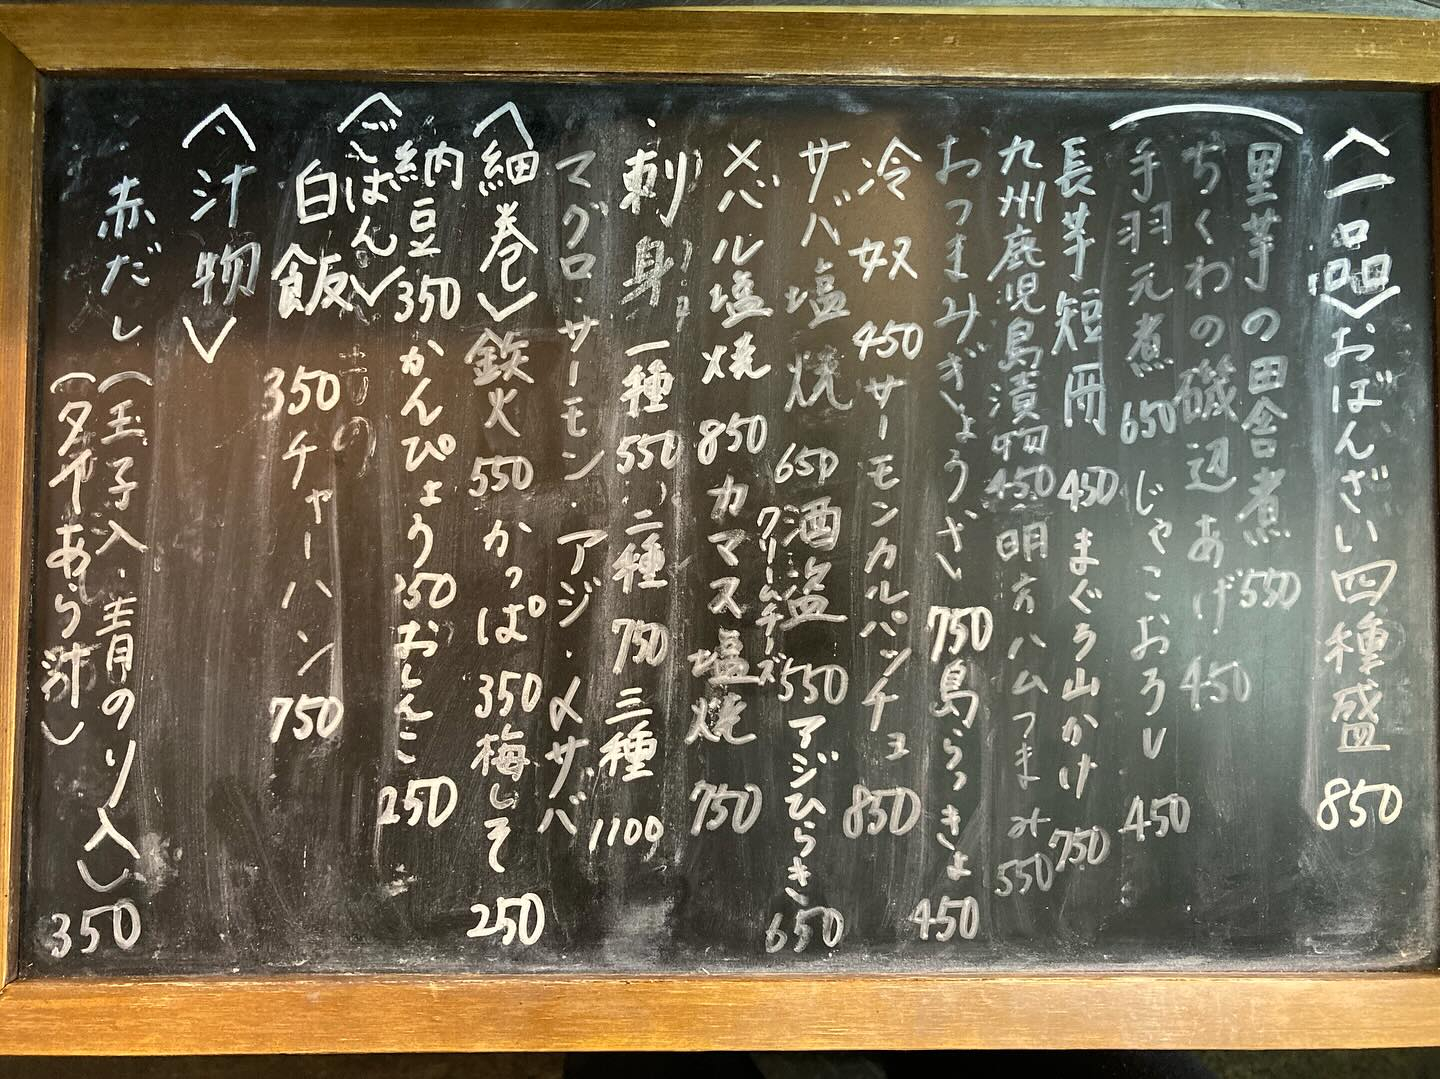 〈一品〉おばんざい四種盛 850
里芋の田舎煮 550
ちくわの磯辺あげ 450
手羽元煮 650 じゃこおろし 450
長芋短冊 450 まぐろ山かけ 750
九州鹿児島漬物 450 明方ハムつまみ 550
おつまみぎょうざ 750 島らっきょ 450
冷奴 450 サーモンカルパッチョ 850
サバ塩焼 650 酒盗クリームチーズ 550 アジひらき 650
メバル塩焼 850 カマス塩焼 750
刺身 一種 550、二種 750 三種 1100
マグロ・サーモン・アジ・〆サバ
〈細巻〉鉄火 550 かっぱ 350 梅しそ 250
納豆 350 かんぴょう 350 おしんこ 250
〈ごはん〉
白飯 350 チャーハン 750
〈汁物〉
赤だし (玉子入・青のり入)
(タヤあら汁) 350